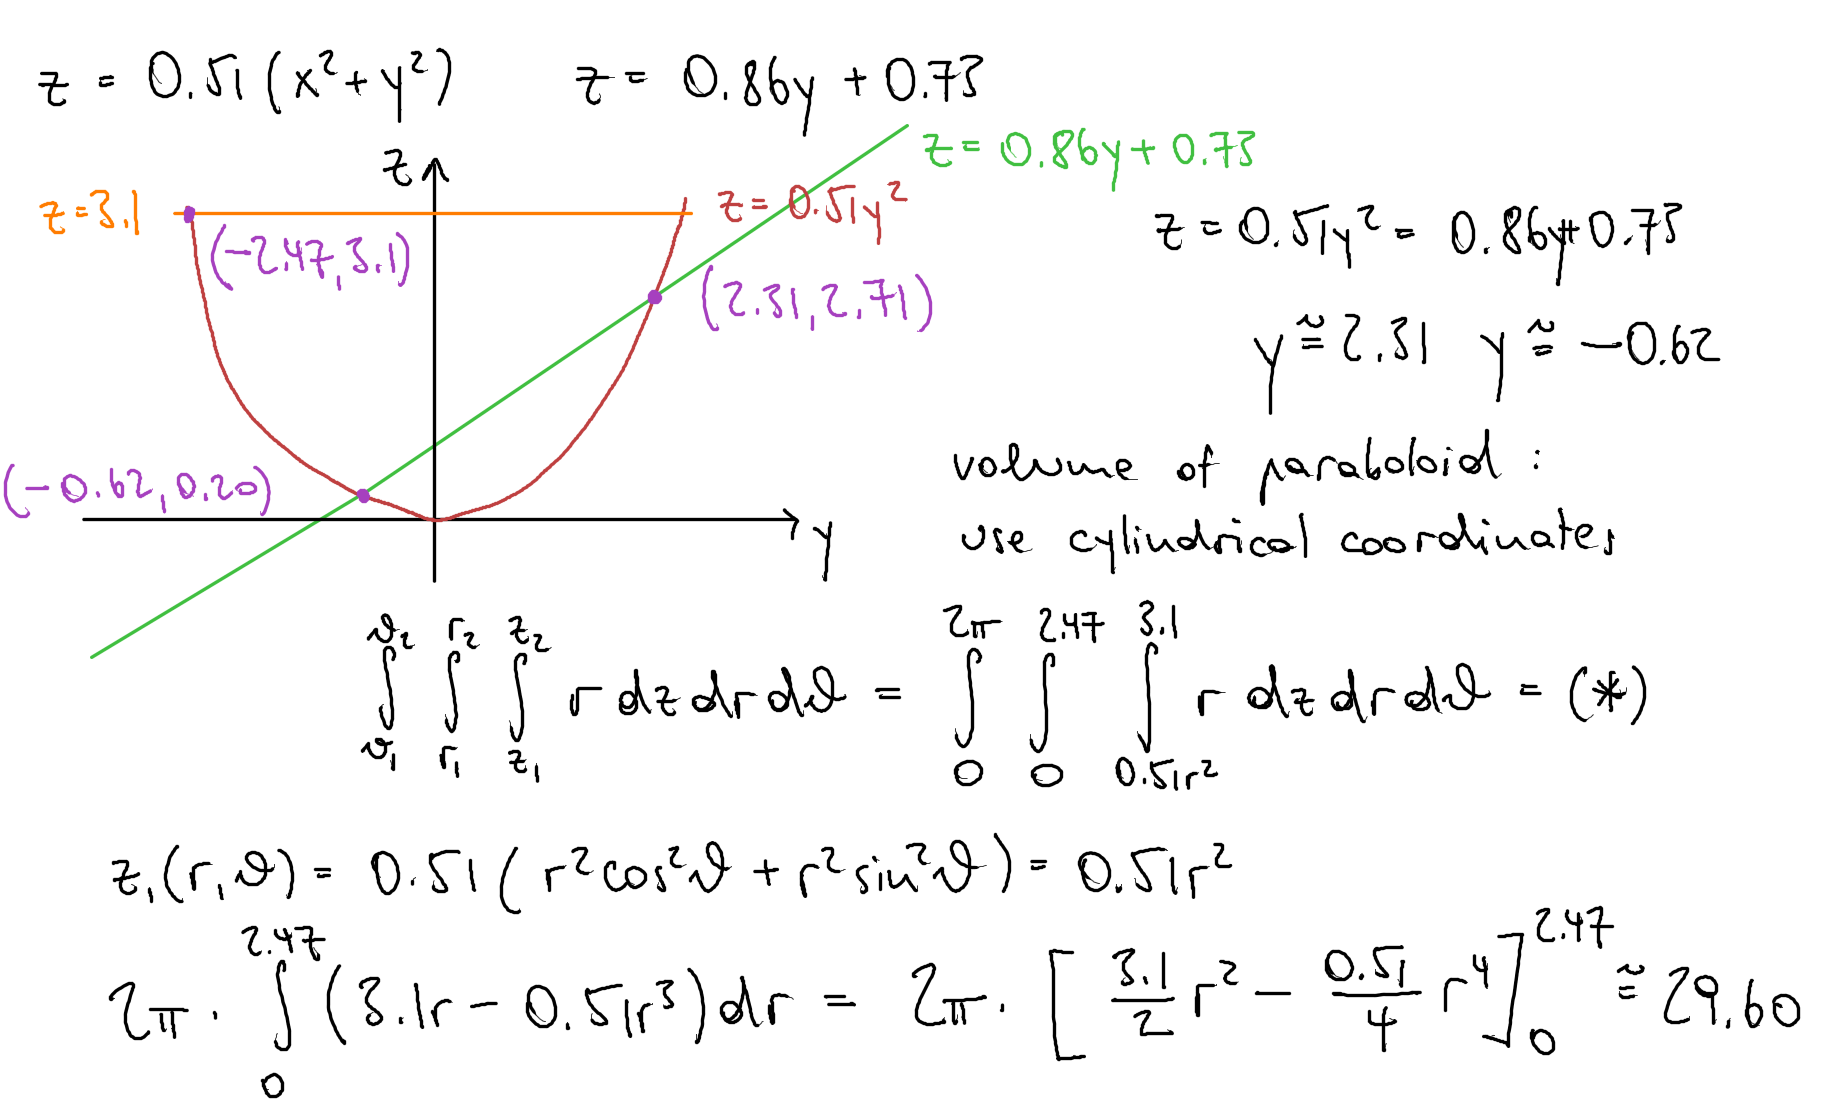 z = 0.51 (x²+y²) z = 0.86y + 0.73
z
z = 0.86y + 0.73
z=3.1
z = 0.51y²
(-2.47, 3.1)
z = 0.51y² = 0.86y+0.73
(2.31, 2.71)
y ≅ 2.31 y ≅ -0.62
(-0.62, 0.20)
y
volume of paraboloid :
use cylindrical coordinates
∫_{ϑ₁}^{ϑ₂} ∫_{r₁}^{r₂} ∫_{z₁}^{z₂} r dz dr dϑ = ∫_0^{2π} ∫_0^{2.47} ∫_{0.51r²}^{3.1} r dz dr dϑ = (*)
z₁(r,ϑ) = 0.51 ( r²cos²ϑ + r²sin²ϑ ) = 0.51r²
2π · ∫_0^{2.47} (3.1r - 0.51r³) dr = 2π · [ 3.1/2 r² - 0.51/4 r⁴ ]_0^{2.47} ≅ 29.60